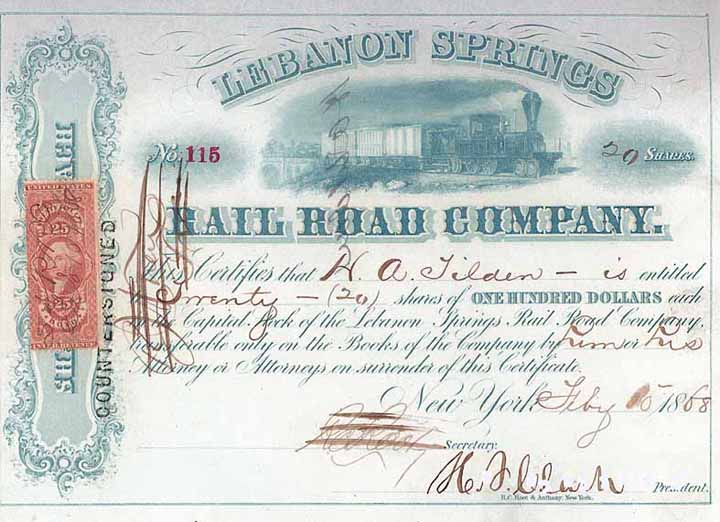 LEBANON SPRINGS
No. 115
20 SHARES.
RAIL ROAD COMPANY.
This Certifies that H. A. Tilden — is entitled
to Twenty — (20) shares of ONE HUNDRED DOLLARS each
in the Capital Stock of the Lebanon Springs Rail Road Company,
transferable only on the Books of the Company by him or his
Attorney or Attorneys on surrender of this Certificate.
New York Feby 1868
Secretary.
President.
H.C. Root & Anthony New York.
UNITED STATES
25 25
INTER. REVENUE
COUNTERSIGNED
SH EACH